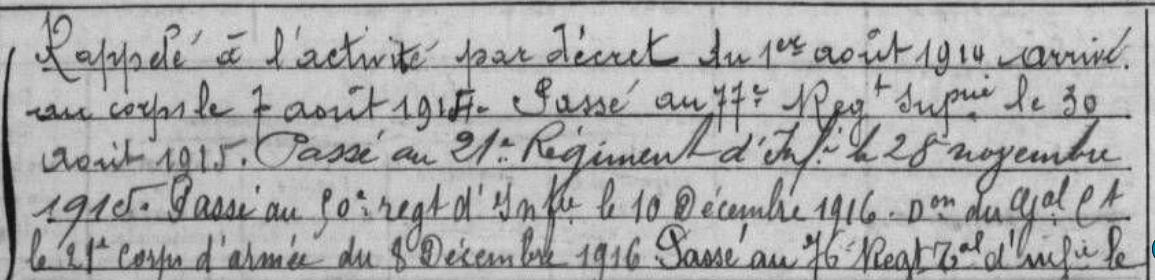 Rappelé à l'activité par décret du 1er août 1914 arrivé.
au corps le 7 août 1914. Passé au 77e Regt Infrie le 30
août 1915. Passé au 21e Régiment d'Infie le 28 novembre
1915. Passé au 50e regt d'Infie le 10 Décembre 1916. Don du Gal Ct
le 21e corps d'armée du 8 Décembre 1916 Passé au 76e Regt Tal d'infie le